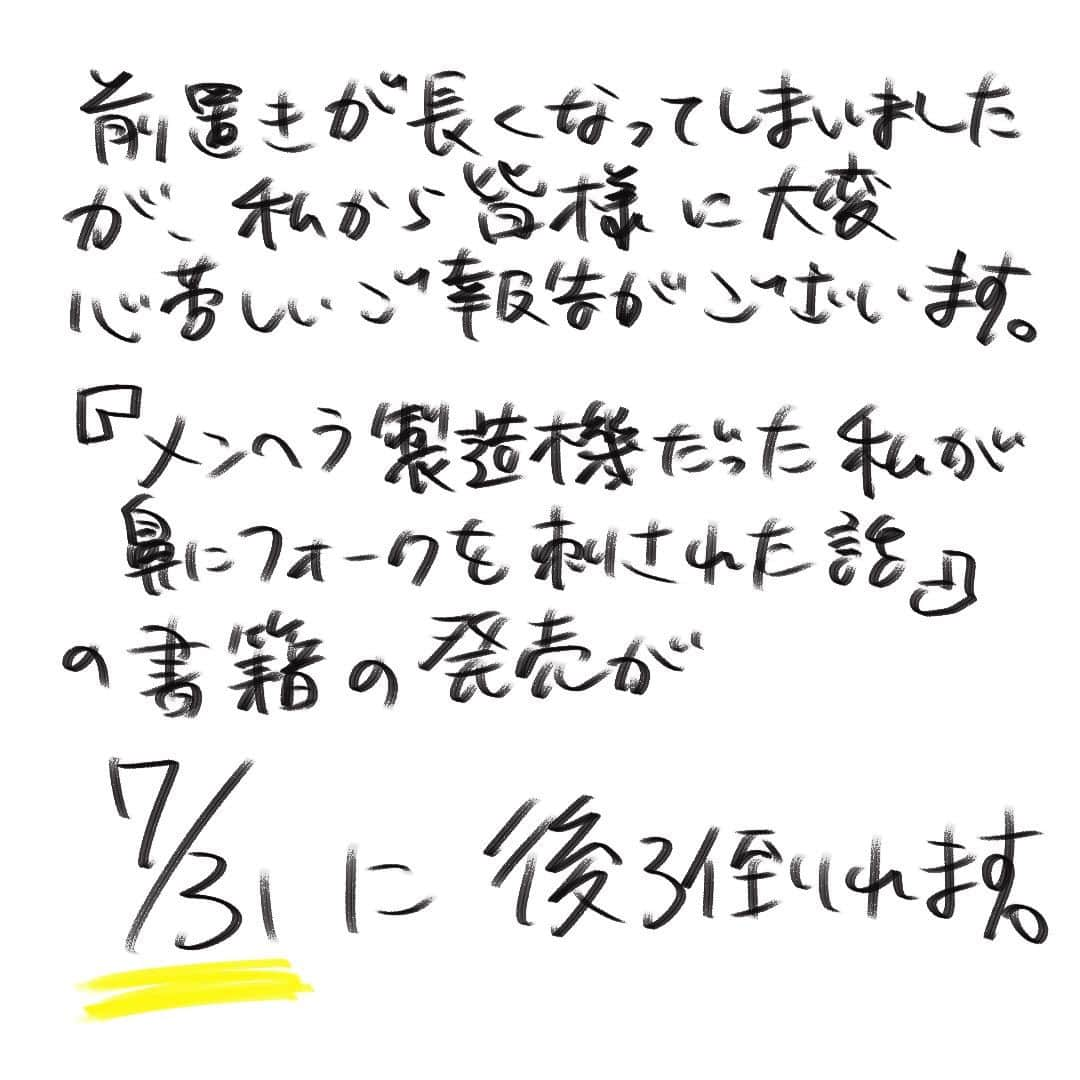 前置きが長くなってしまいました
が、私から皆様に大変
心苦しいご報告がございます。
『メンヘラ製造機だった私が
鼻にフォークを刺された話』
の書籍の発売が
7/31に後ろ倒れます。